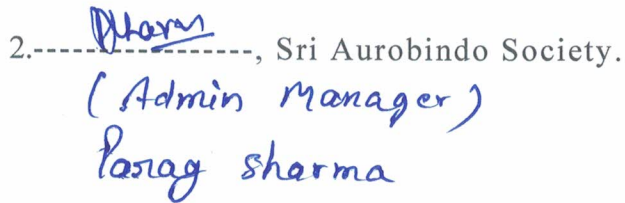 2.--------------------, Sri Aurobindo Society.
(Admin Manager)
Parag sharma